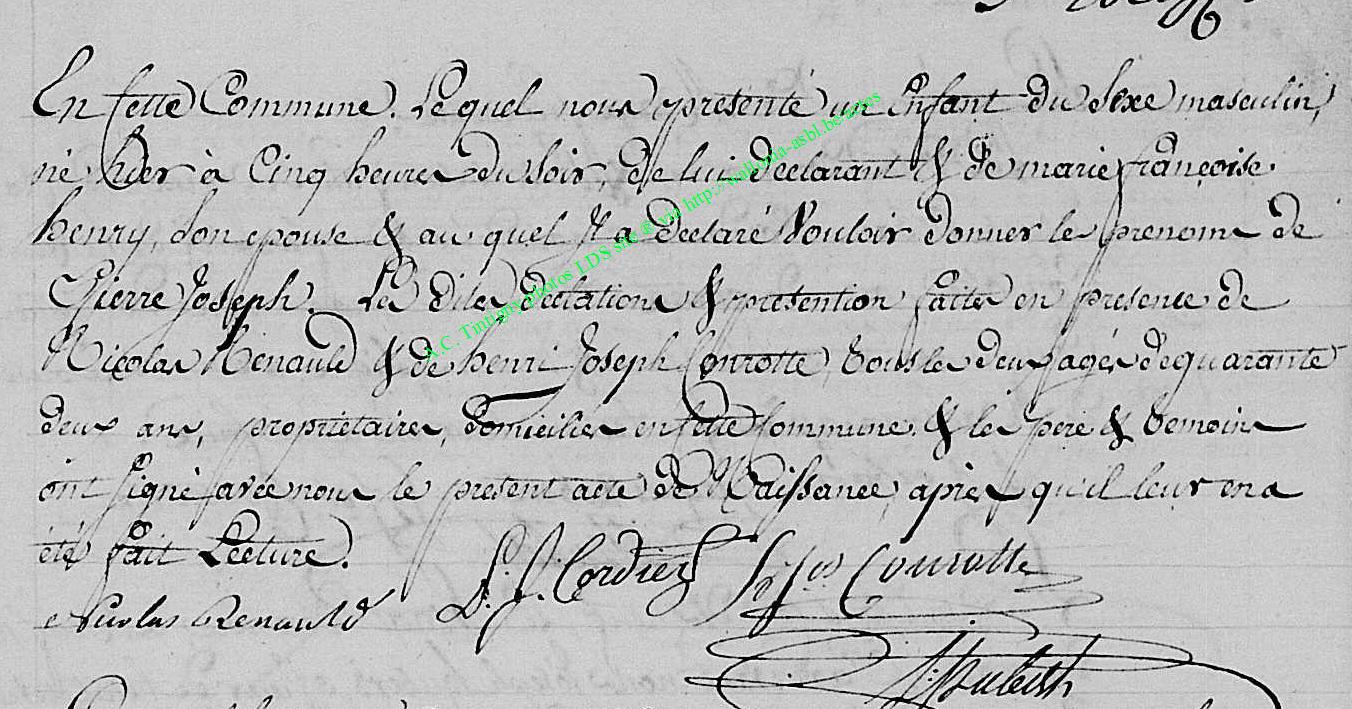 En Cette Commune. Lequel nous a présenté un Enfant du Sexe masculin,
né hier à Cinq heures du Soir, de lui déclarant & de marie françoise
henry, Son epouse & au quel Il a déclaré Vouloir donner les prenoms de
Pierre Joseph. Les dites déclations & présention faites en présence de
Nicolas Renauld & de henri Joseph Conrotte, tous les deux agés de quarante
deux ans, propriétaires, domiciliés en Cette Commune. & les pere & temoins
ont Signé avec nous le présent acte de Naissance, après qu'il leur en a
été fait Lecture.
Nicolas Renauld
Cordier
Conrotte
A.C. Tintigny photos LDS site ® via http://wallonia-asbl.be/actes